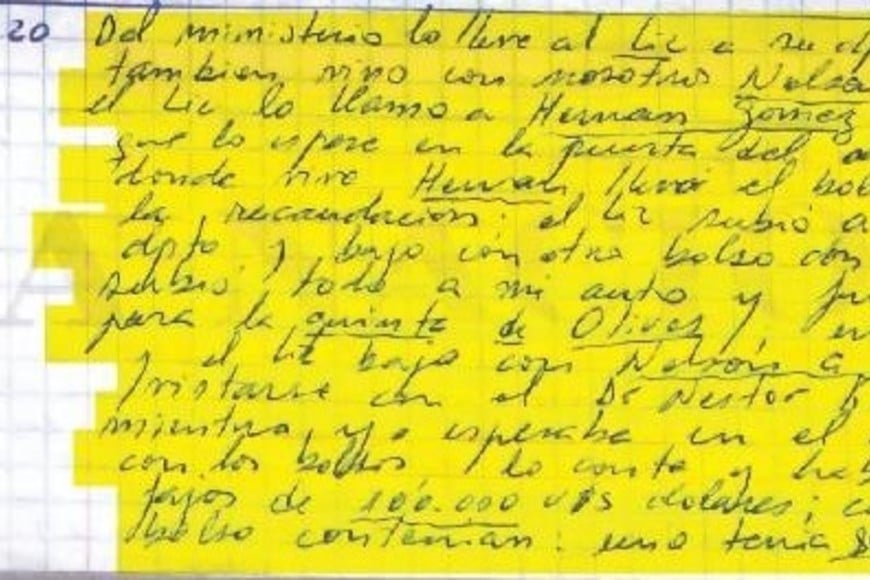 20 Del ministerio lo lleve al Lic a su dp
tambien vino con nosotros Nelso
el Lic lo llamo a Hernan Gomez
que lo espere en la puerta del
donde vive Hernan, llevó el bol
la recaudacion; el Lic subió a
dpto y bajo con otro bolso con
subió todo a mi auto y fu
para la quinta de Olivos, en
y el Lic bajo con Nelson a
con el Dr Nestor K
mientras yo esperaba en el
con los bolsos lo conte y hab
fajos de 100.000 U\$S dolares; c
bolso contenian: uno tenia \$